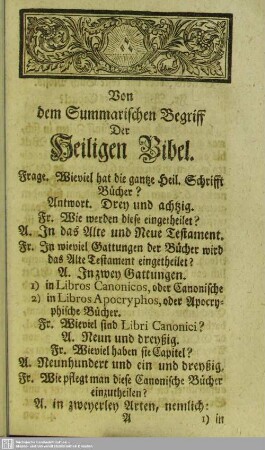 Von
dem Summarischen Begriff
Der
Heiligen Bibel.
Frage. Wieviel hat die gantze Heil. Schrifft
Bücher?
Antwort. Drey und achtzig.
Fr. Wie werden diese eingetheilet?
A. In das Alte und Neue Testament.
Fr. In wieviel Gattungen der Bücher wird
das Alte Testament eingetheilet?
A. In zwey Gattungen.
1) in Libros Canonicos, oder Canonische
2) in Libros Apocryphos, oder Apocry-
phische Bücher.
Fr. Wieviel sind Libri Canonici?
A. Neun und dreyßig.
Fr. Wieviel haben sie Capitel?
A. Neunhundert und ein und dreyßig.
Fr. Wie pflegt man diese Canonische Bücher
einzutheilen?
A. in zweyerley Arten, nemlich:
A 1) in